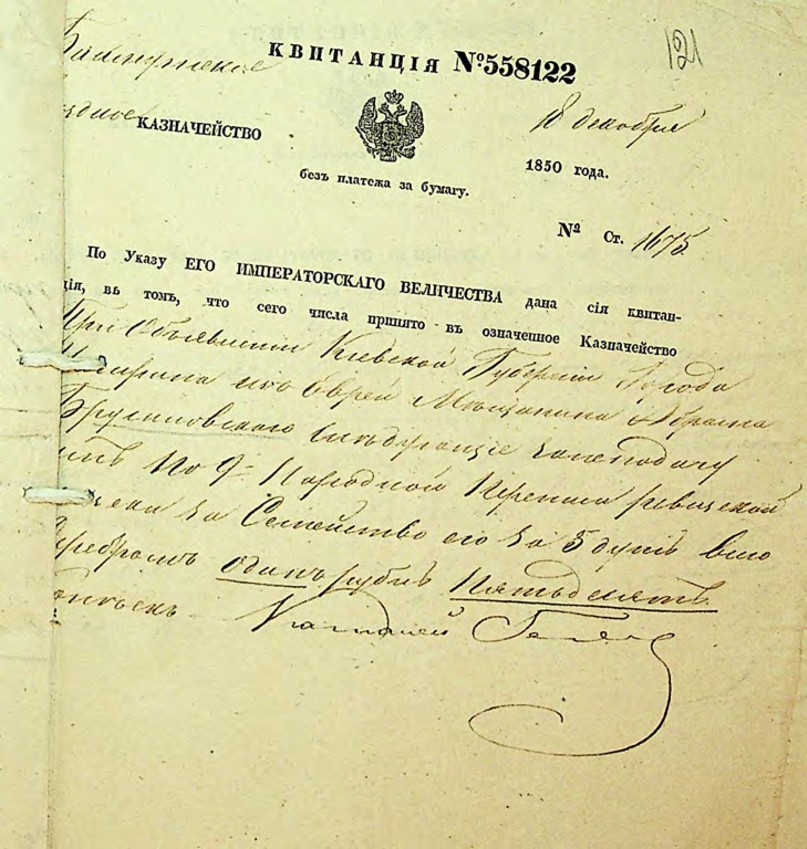 121
КВИТАНЦІЯ №558122
Бахмутское
КАЗНАЧЕЙСТВО
18 декабря
1850 года.
безъ платежа за бумагу.
№ Ст. 1675.
По Указу ЕГО ИМПЕРАТОРСКАГО ВЕЛИЧЕСТВА дана сія квитан-
ція, въ томъ, что сего числа принято въ означенное Казначейство
При Объявленіи Кіевской Губерніи Города
Еврея Мещанина Абрама
за
по 9й Народной Переписи ревизской
за Семейство его за 5 душъ всего
Серебромъ одинъ рубль пятьдесятъ
копѣекъ